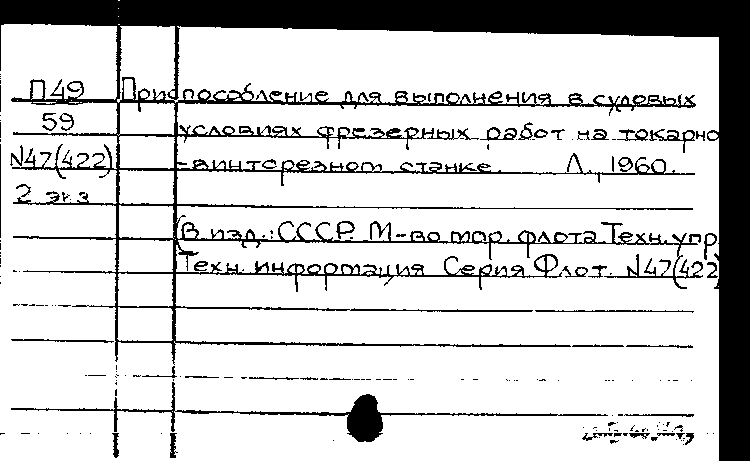 П49 Приспособление для выполнения в судовых
59 условиях фрезерных работ на токарно
N47(422) -винторезном станке. Л., 1960.
2 экз
(В изд.: СССР. М-во мор. флота. Техн. упр.
Техн. информация Серия Флот. N47(422)